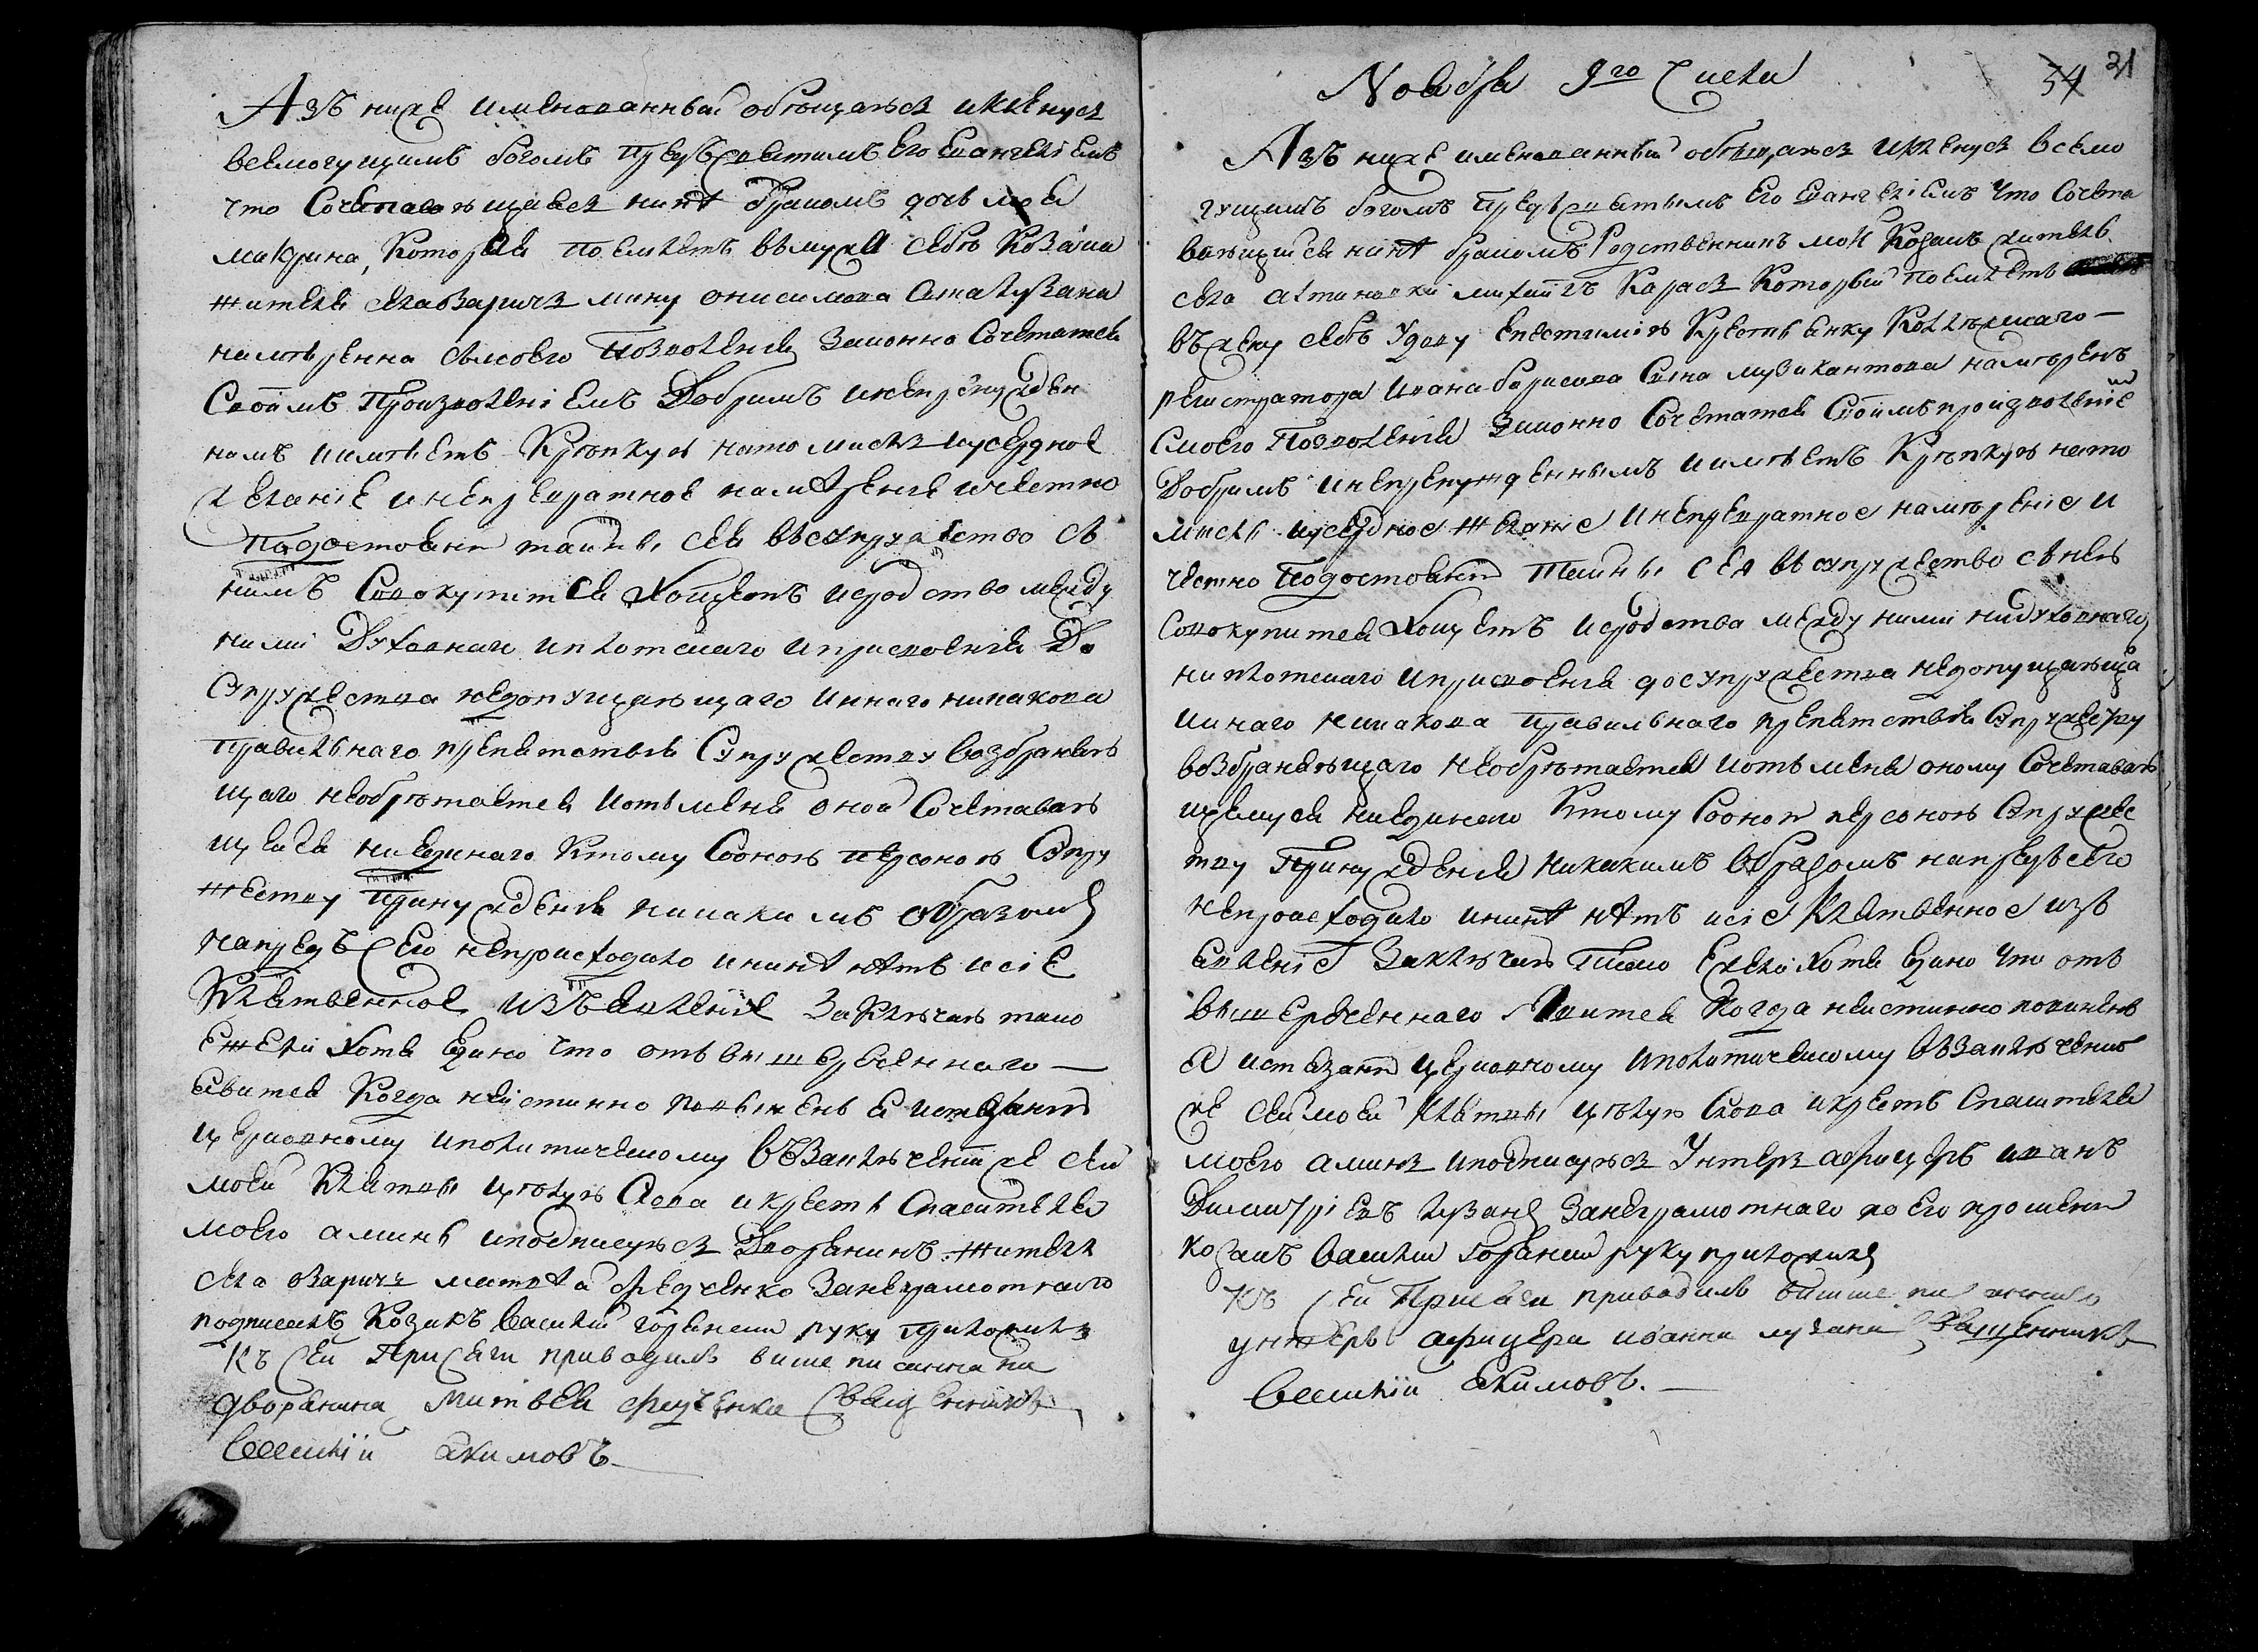 Азъ ниже именованный обѣщаюсь и клянусь
всемогущимъ богомъ предъ святимъ Его Евангелиемъ
что Сочетавающаясь нинѣ бракомъ дочь моя
Макрина, Которая поемлетъ въ мужа себѣ Козака
жителя села озаричъ мину онисимова Сина лузана
намѣренна съ моего Позволения законно Сочетатся
Своимъ Произволениемъ Добримъ и непрѣнужден
нимъ и имѣетъ Крѣпкую на то мисль и усердное
желание и непревратное намѣрение и честно
по достоянию тайны сея въ супружество съ
нимъ Совокупится хощетъ и сродство между
ними Духовнаго и плотскаго и присвоения до
Супружества недопущающаго и инаго никакова
правильнаго препятствия Супружеству возбраняю
щаго необрѣтается и отъ мене оной Сочетаваю
щейся ни единаго Ктому Сооною персоною Супру
жеству принуждения никакимъ образомъ
напредъ сего непроисходило и нинѣ нѣтъ и сие
Клятвенное изъявление заключаю тако
Ежели хотя едино что отъ вишереченнаго
явится когда неистинно повиненъ я истязанию
церковному и политическому въ заключение же сей
моей Клятвы цѣлую Слова и крестъ Спасителя
моего аминь и подписуюсь Дворянинъ житель
села озаричъ матвѣй федченко за неграмотнаго
подписалъ Козакъ василий горянский руку приложилъ
Къ сей Присяги приводилъ вишеписаннаго
дворанина матвея федченка Священникъ
василий акимовъ

31
54
Ноября 9го Числа
Азъ ниже именованный обѣщаюсь и клянусь всемо
гущимъ богомъ предъ святымъ Его Евангелиемъ что Сочета
вающийся нинѣ бракомъ Родственникъ мой Козакъ житель
села алтиновки михаилъ Карась Который поемлетъ
въ жену себѣ Удову Епестимию Крестьянку Коллѣжскаго
регистратора Ивана борисова Сина музикантова намѣренъ
смоего Позволения законно Сочетатся Своимъ произволение
имъ
Добримъ и непрепужденнымъ и имѣетъ Крѣпкую на то
мисль и усердное желание и непревратное намѣрение и
честно по достоянию тайны сея въ супружество съ нею
Совокупится хощетъ и сродства между ними ни духовнаго
ни плотскаго и присвоения до супружества недопущающа
го
и инаго никакова правильнаго препятствия Супружеству
возбраняющаго необрѣтается и отъ мене оному Сочетаваю
щемуся ниединаго Ктому Сооною персоною Супружес
тву принуждения никакимъ Образомъ напредъ сего
непроисходило и нинѣ нѣтъ и сие Клятвенное изъ
явление заключаю тако Ежели хотя едино что отъ
вышереченнаго Явится Когда неистинно повиненъ
я истязанию церковному и политическому въ заключение
же сей моей Клятвы цѣлую Слова и крестъ Спасителя
моего аминь и подписуюсь Унтеръ афицеръ иванъ
Димитриевъ лузанъ за неграмотнаго по его прошению
козакъ василий Горянский руку приложилъ
Къ сей Присяги приводилъ вишеписаннаго
унтеръ афицера иоанна лузана Священникъ
василий акимовъ.